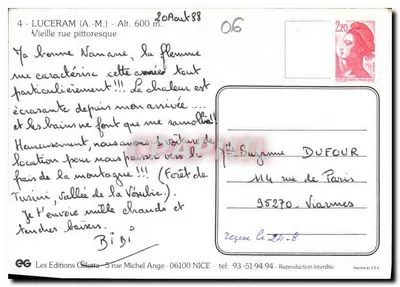 20 Aout 88
06
4 - LUCERAM (A.-M.) - Alt. 600 m.
Vieille rue pittoresque
2,20
Ma bonne Nanane, la flemme
me caractérise cette année tout
particulièrement!!! La chaleur est
écrasante depuis mon arrivée ....
et les bains ne font que me ramollir!!
Heureusement, nous avons 1 voiture de
location pour nous pousser vers le
frais de la montagne!!! (Forêt de
Turini, vallée de la Vésubie).
Je t'envoie mille chauds et
tendres baisers.
BiBi
Mlle Suzanne DUFOUR
114 rue de Paris
95270 - Viarmes
reçue le 24-8
Les Editions Giletta - 5 rue Michel Ange - 06100 NICE - tél. 93-51-94-94 - Reproduction interdite